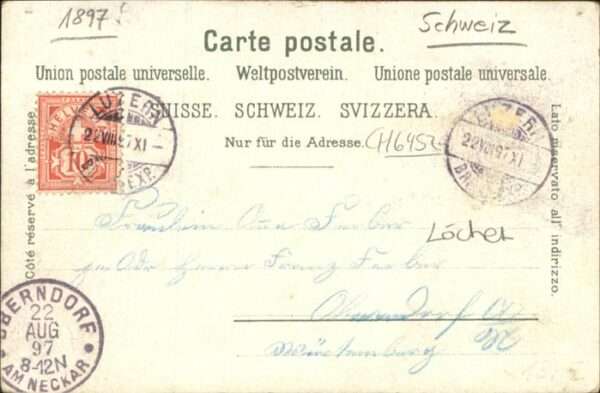 1897!
Schweiz
Carte postale.
Union postale universelle. Weltpostverein. Unione postale universale.
SUISSE. SCHWEIZ. SVIZZERA.
Nur für die Adresse.
(H6452
Côté réservé à l'adresse.
Lato riservato all' indirizzo.
HELV
10
LUZERN
22.VIII.97.XI
BR. EXP.
LUZERN
22.VIII.97.XI
BR. EXP.
Fräulein Ferber
Löcher
Franz Ferber
Oberndorf a/
N
Württemberg
OBERNDORF
22
AUG
97
8-12N
AM NECKAR